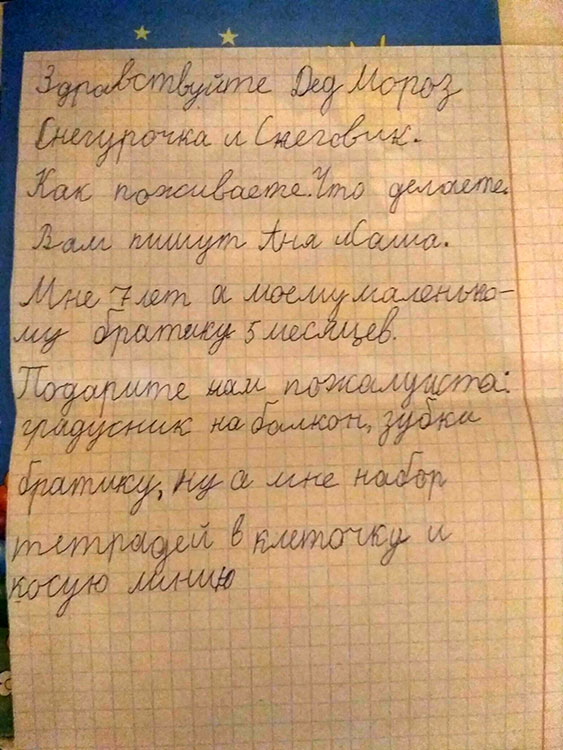 Здравствуйте Дед Мороз
Снегурочка и Снеговик.
Как поживаете. Что делаете.
Вам пишут Аня Маша.
Мне 7 лет а моему маленько-
му братику 5 месяцев.
Подарите нам пожалуиста:
градусник на балкон, зубки
братику, ну а мне набор
тетрадей в клеточку и
косую линию